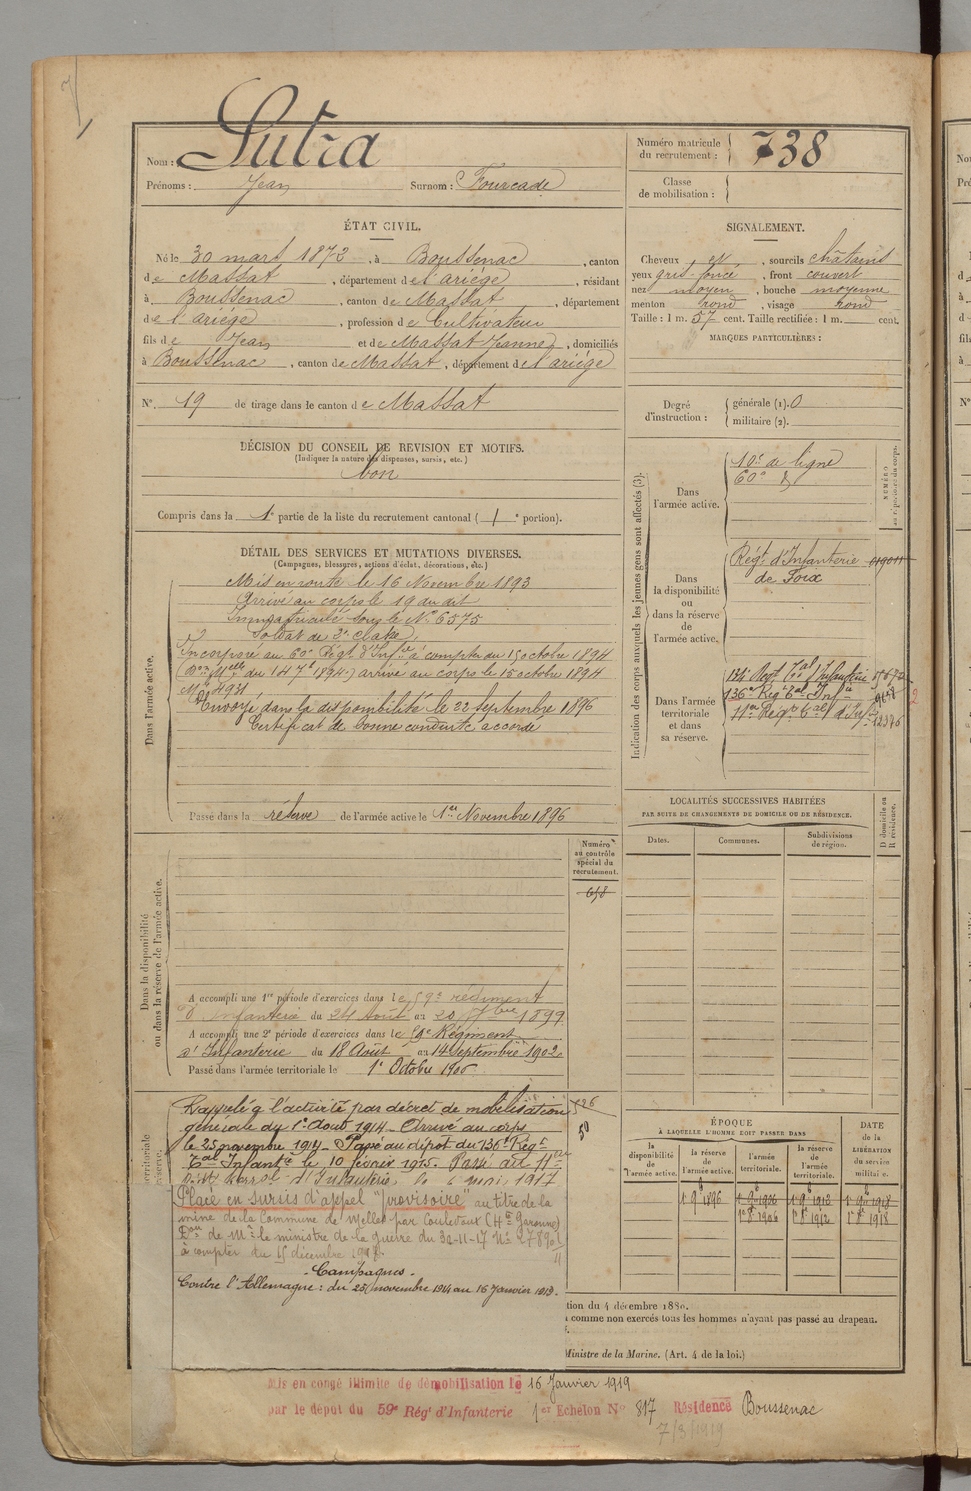 Nom : Sutra
Prénoms : Jean Surnom : Fourcade
Numéro matricule du recrutement : 738
Classe de mobilisation :
ÉTAT CIVIL.
Né le 30 mars 1872, à Boussenac, canton
de Massat, département de l'ariège, résidant
à Boussenac, canton de Massat, département
de l'ariège, profession de Cultivateur
fils de Jean et de Massat Jeanne, domiciliés
à Boussenac, canton de Massat, département de l'ariège
N° 19 de tirage dans le canton de Massat
SIGNALEMENT.
Cheveux et, sourcils châtains
yeux gris foncé, front couvert
nez moyen, bouche moyenne
menton rond, visage rond
Taille : 1 m. 57 cent. Taille rectifiée : 1 m. cent.
MARQUES PARTICULIÈRES :
Degré d'instruction : générale (1). 0
militaire (2).
DÉCISION DU CONSEIL DE REVISION ET MOTIFS.
(Indiquer la nature des dispenses, sursis, etc.)
bon
Compris dans la 1e partie de la liste du recrutement cantonal ( 1 e portion).
DÉTAIL DES SERVICES ET MUTATIONS DIVERSES.
(Campagnes, blessures, actions d'éclat, décorations, etc.)
Dans l'armée active.
Mis en route le 16 Novembre 1893
Arrivé au corps le 19 du dit
Immatriculé sous le N° 6575
Soldat de 2e classe
Incorporé au 60e Régt d'Infie à compter du 15 octobre 1894
du 14 7e 1894) arrivé au corps le 15 octobre 1894
Mle 4931
Envoyé dans la disponibilité le 22 septembre 1896
Certificat de bonne conduite accordé
Passé dans la réserve de l'armée active le 1er Novembre 1896
Indication des corps auxquels les jeunes gens sont affectés (3).
NUMÉRO
Dans l'armée active.
10e de ligne
60e d
Dans la disponibilité ou dans la réserve de l'armée active.
Régt d'Infanterie
de Foix
Dans l'armée territoriale et dans sa réserve.
134e Regt Tal d'Infanterie
136e Régt Tal Infie
11er Régt Tal d'Infie 12376
LOCALITÉS SUCCESSIVES HABITÉES
PAR SUITE DE CHANGEMENTS DE DOMICILE OU DE RÉSIDENCE.
Dates. Communes. Subdivisions de région.
D domicile ou R résidence.
Dans la disponibilité ou dans la réserve de l'armée active.
Numéro au contrôle spécial du recrutement.
658
A accompli une 1re période d'exercices dans le 59e régiment
d'Infanterie du 24 Août au 20 7bre 1899
A accompli une 2e période d'exercices dans le 59e Régiment
d'Infanterie du 18 Août au 14 Septembre 1902
Passé dans l'armée territoriale le 1er Octobre 1906
territoriale
Rappelé à l'activité par décret de mobilisation 526
générale du 1er Août 1914. Arrivé au corps
le 25 novembre 1914. Passé au dépôt du 136e Régt
Tal Infantie le 10 février 1915. Passé au 11er
d'Infanterie, le 6 mai 1917
Placé en sursis d'appel "provisoire" au titre de la
mine de la Commune de Melles par Couledoux (Hte Garonne)
Don de Mr le ministre de la Guerre du 30-11-17 N°
à compter du 15 décembre
Campagnes.
Contre l'Allemagne : du 25 novembre 1914 au 16 Janvier 1919.
ÉPOQUE
À LAQUELLE L'HOMME DOIT PASSER DANS
la disponibilité de l'armée active. la réserve de l'armée active. l'armée territoriale. la réserve de l'armée territoriale.
DATE de la LIBÉRATION du service militaire.
1er 9e 1896 1er 9e 1906 1er 9e 1912 1er 9e 1918
1er 8e 1906 1er 8e 1912 1er 8e 1918
tion du 4 décembre 1889.
comme non exercés tous les hommes n'ayant pas passé au drapeau.
Ministre de la Marine. (Art. 4 de la loi.)
Mis en congé illimité de démobilisation le 16 Janvier 1919
par le dépôt du 59e Régt d'Infanterie 1er Echelon N° 817 Résidence Boussenac
7/3/1919